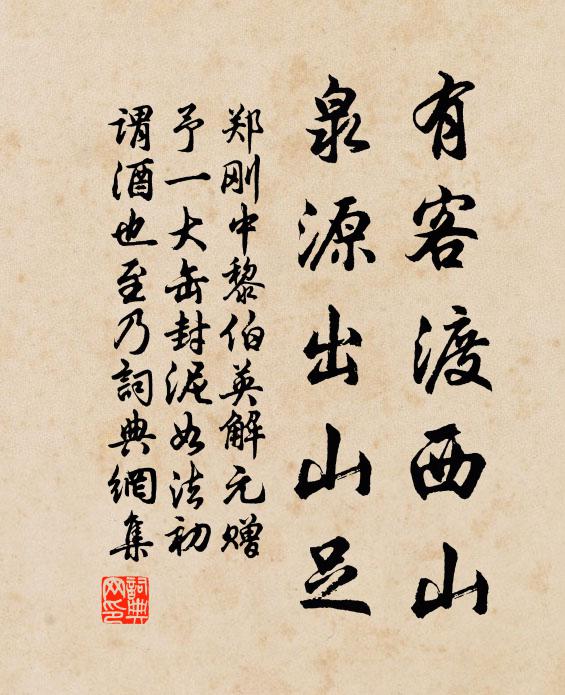 有客渡西山
泉源出山足
郑刚中黎伯英解元赠
予一大缶封泥如法初
谓酒也至乃詞典網集
詞典网印